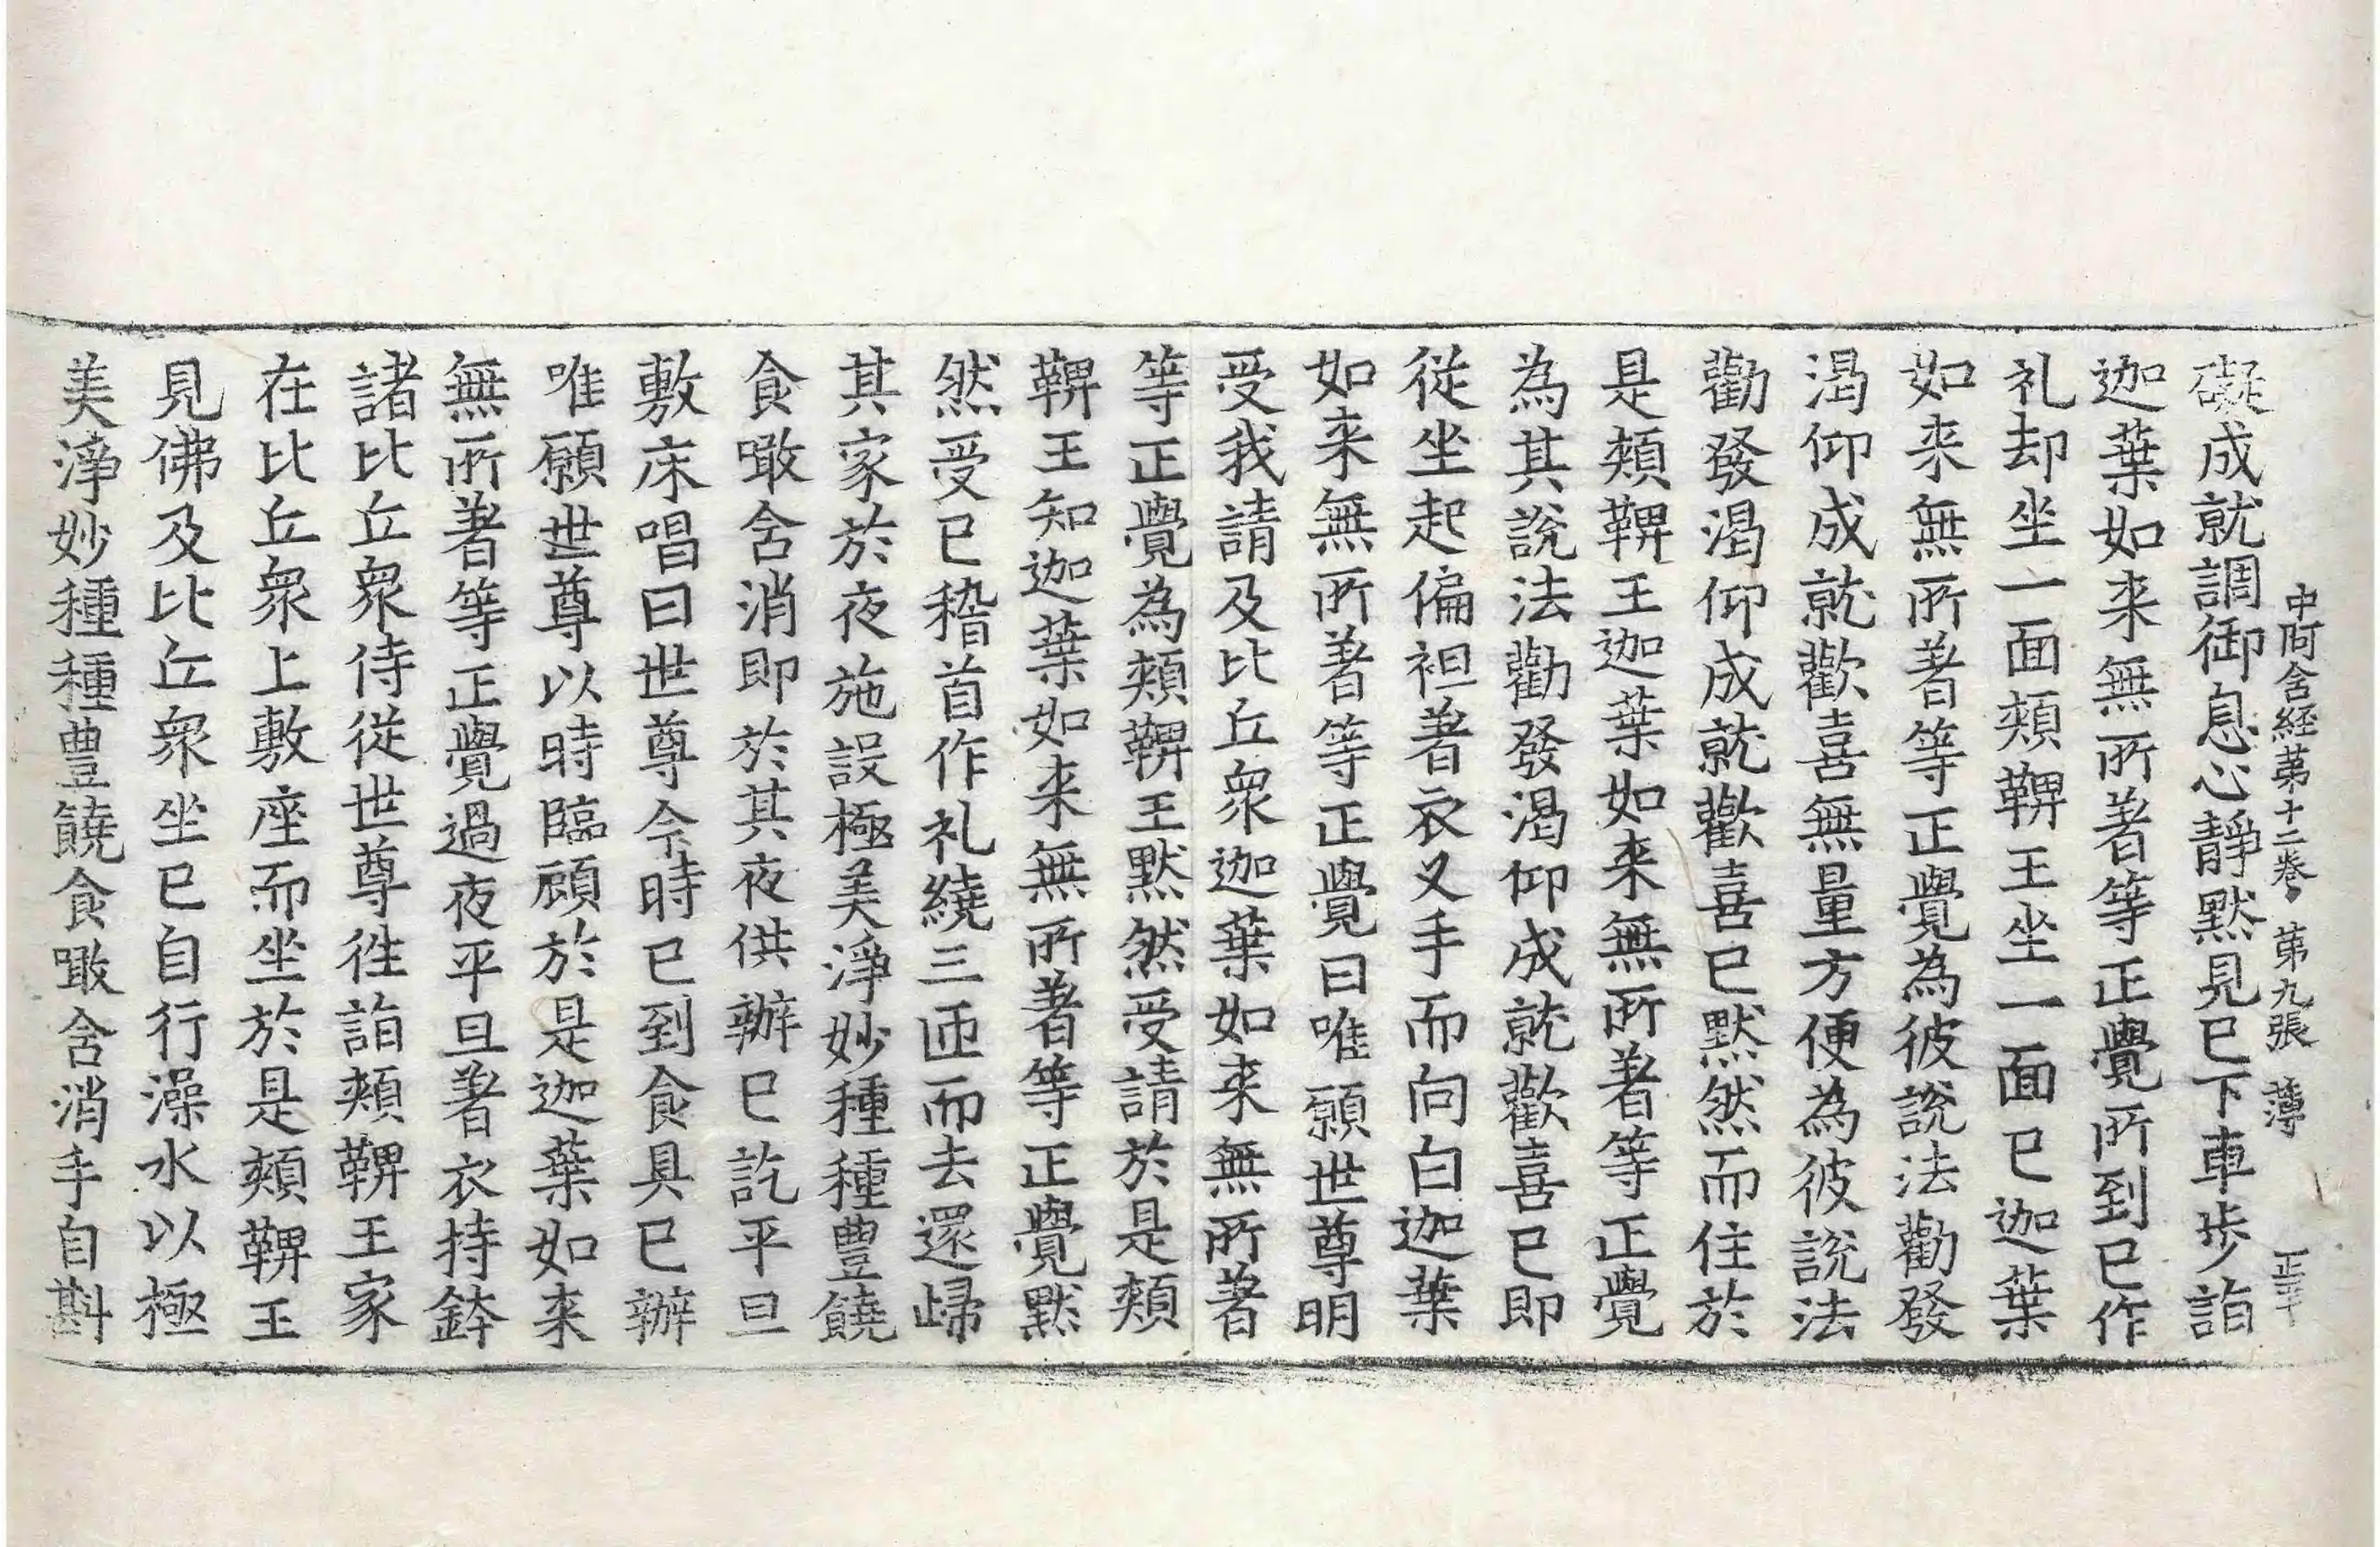 中阿含経苐十二卷 苐九張 薄
礙成就調御息心靜黙見已下車步詣
迦葉如来無所著等正覺所到已作
礼却坐一面頰鞞王坐一面已迦葉
如来無所著等正覺為彼說法勸發
渴仰成就歡喜無量方便為彼說法
勸發渴仰成就歡喜已黙然而住於
是頰鞞王迦葉如来無所著等正覺
為其說法勸發渴仰成就歡喜已即
從坐起偏袒著衣叉手而向白迦葉
如来無所著等正覺曰唯願世尊明
受我請及比丘衆迦葉如来無所著
等正覺為頰鞞王黙然受請於是頰
鞞王知迦葉如来無所著等正覺黙
然受已稽首作礼繞三匝而去還歸
其家於夜施設極美淨妙種種豊饒
食噉含消即於其夜供辦已訖平旦
敷床唱曰世尊今時已到食具已辦
唯願世尊以時臨顧於是迦葉如来
無所著等正覺過夜平旦著衣持鉢
諸比丘衆侍從世尊徃詣頰鞞王家
在比丘衆上敷座而坐於是頰鞞王
見佛及比丘衆坐已自行澡水以極
美淨妙種種豊饒食噉含消手自斟